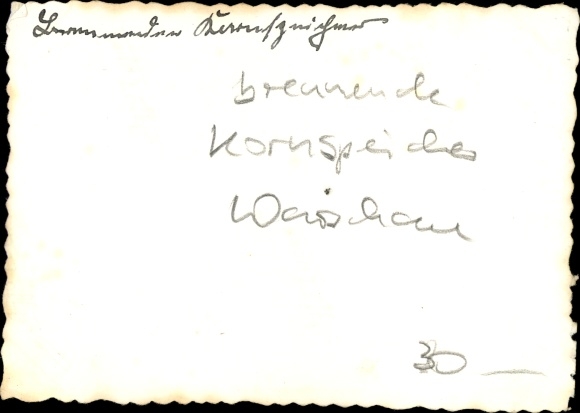 Brennender Kornspeicher
brennende
Kornspeicher
Warschau
30 —